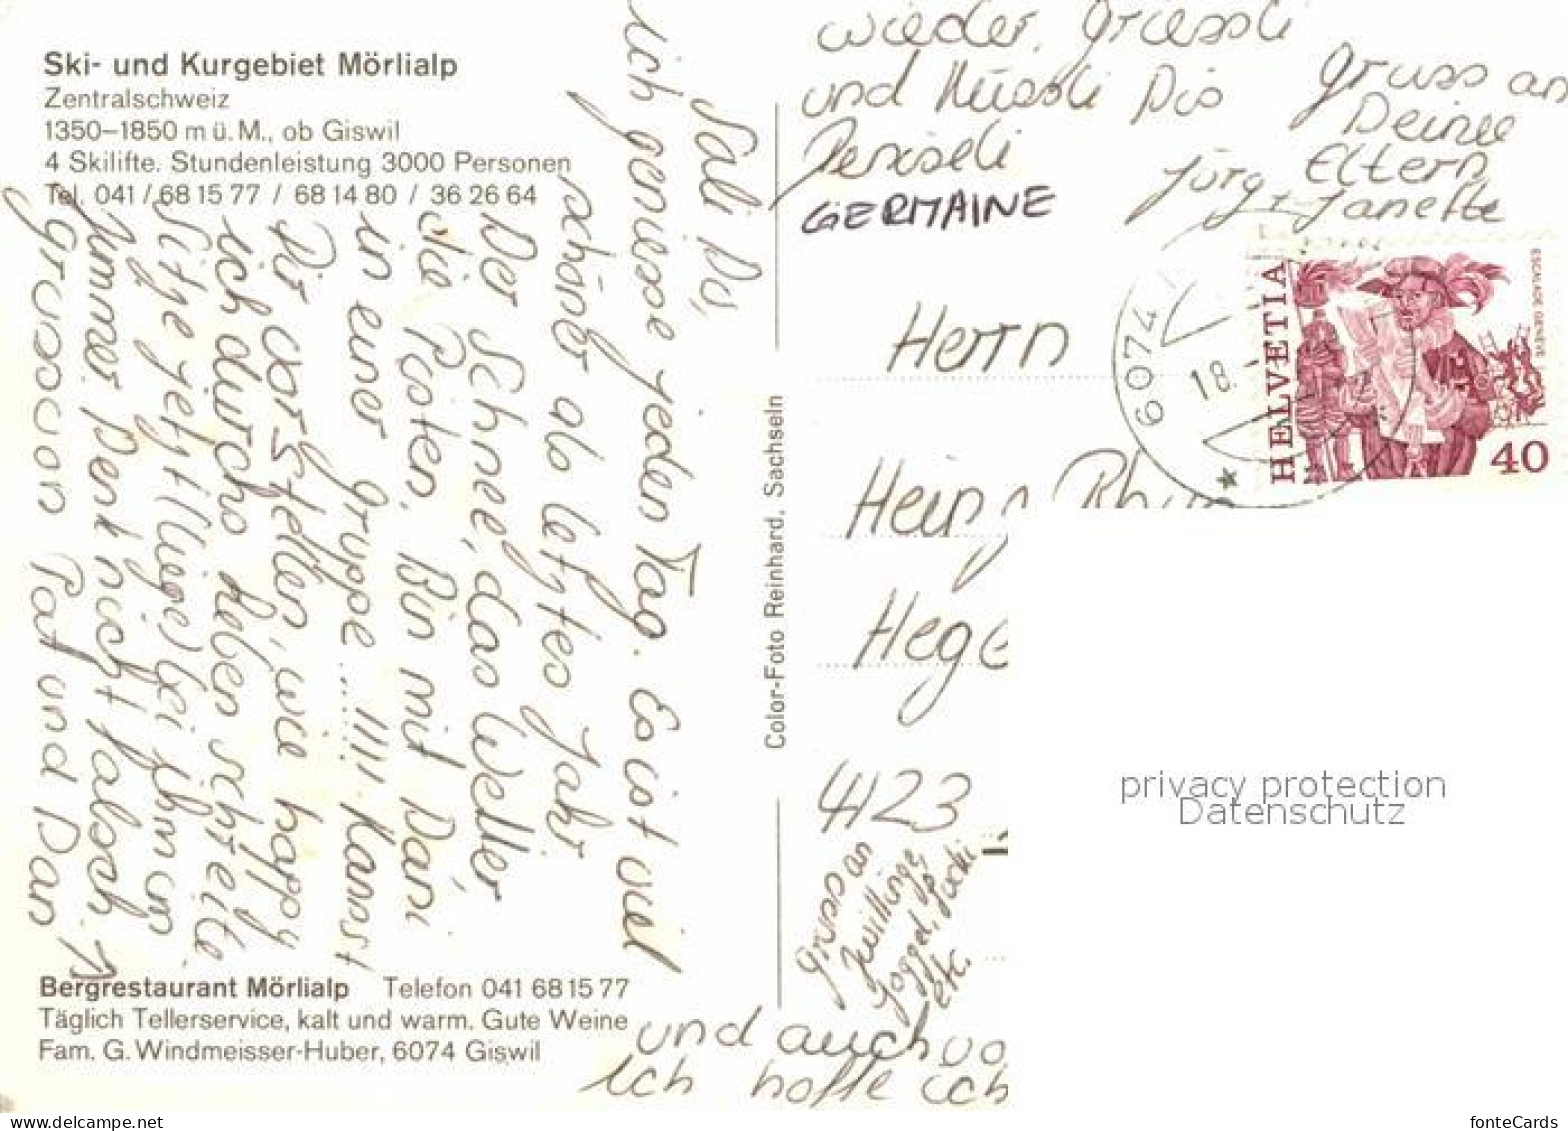 Ski- und Kurgebiet Mörlialp
Zentralschweiz
1350–1850 m ü. M., ob Giswil
4 Skilifte. Stundenleistung 3000 Personen
Tel. 041 / 68 15 77 / 68 14 80 / 36 26 64
Sali
ich geniesse jeden Tag. Es ist viel
schöner als letztes Jahr
Der Schnee, das Wetter,
die Pisten. Bin mit Dani
in einer Gruppe ...... !!!! Kannst
Dir vorstellen, wie happy
ich durchs Leben schreite.
Sitze jetzt (liege) bei ihm im
Zimmer. Denk nicht falsch.
Grusson Pat und Dan
Bergrestaurant Mörlialp Telefon 041 68 15 77
Täglich Tellerservice, kalt und warm. Gute Weine
Fam. G. Windmeisser-Huber, 6074 Giswil
und auch
ich hoffe ich
Color-Foto Reinhard, Sachseln
wieder. Griessli
und Küessli Dis
GERMAINE
Gruss an
Deine
Eltern
Jürg + Janette
6074
18.
HELVETIA
ESCALADE GENÈVE
40
Herrn
Heinz
4123
Gruss an
Zwillinge,
Joggel,
etc.
privacy protection
Datenschutz
www.ansichtskartenversand.com
fonteCards